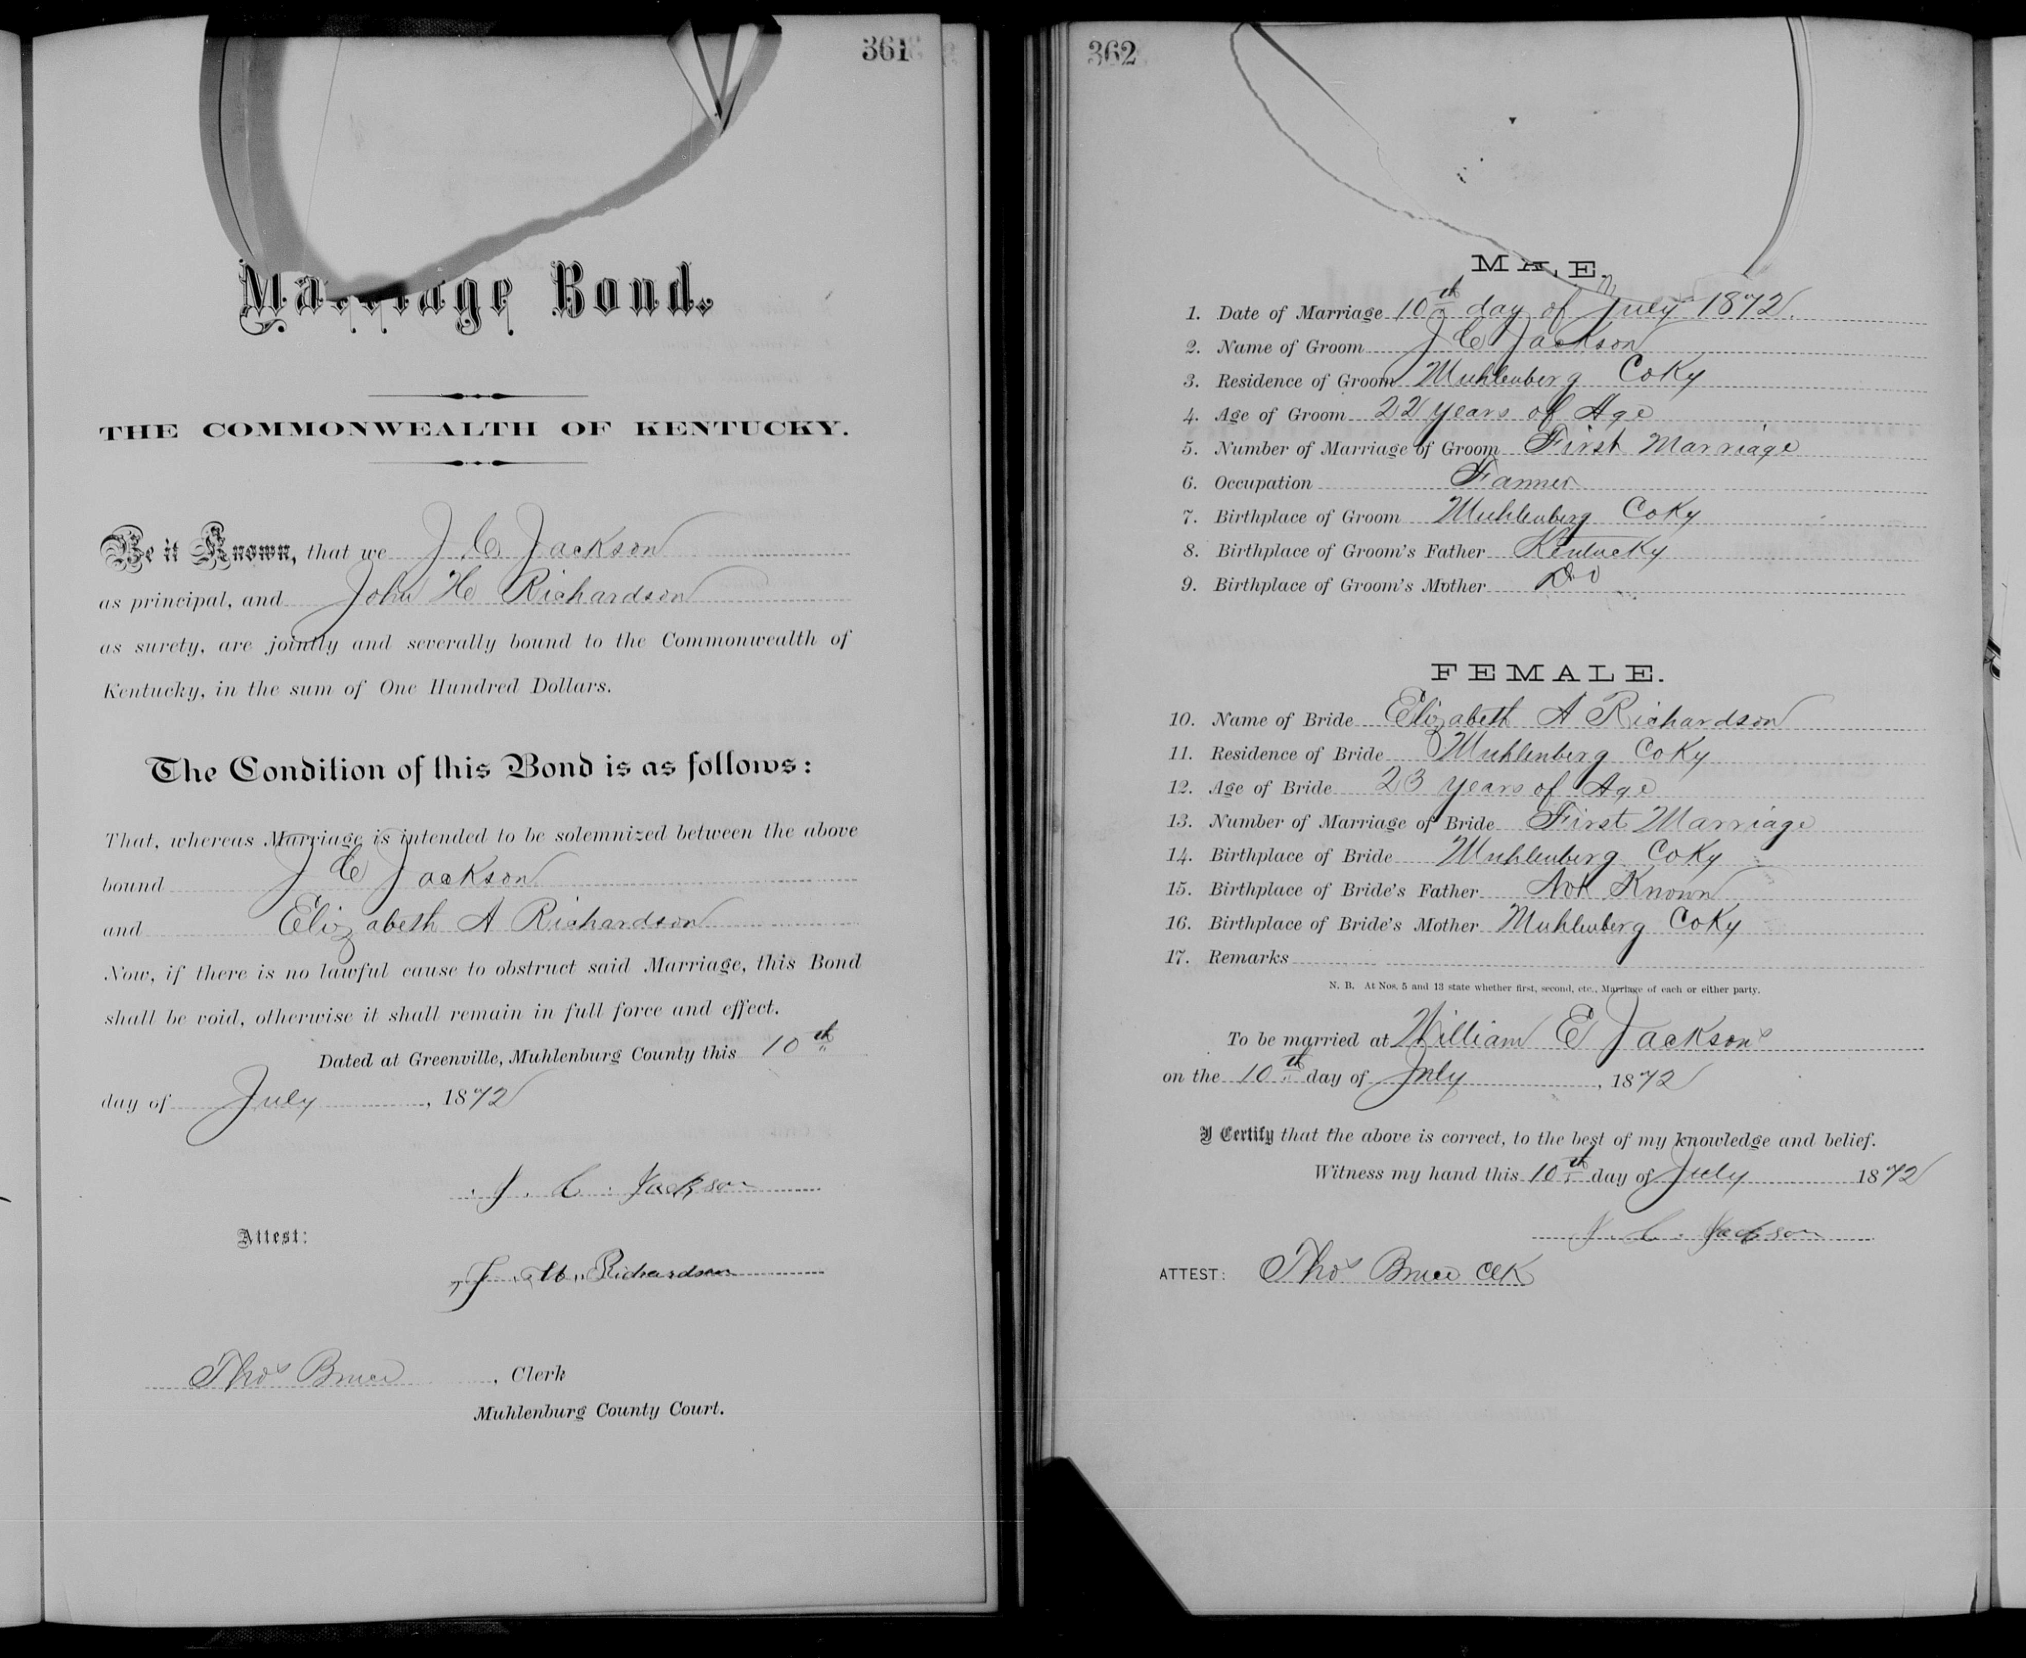 361
Marriage Bond.
THE COMMONWEALTH OF KENTUCKY.
Be it Known, that we J C Jackson
as principal, and John H Richardson
as surety, are jointly and severally bound to the Commonwealth of
Kentucky, in the sum of One Hundred Dollars.
The Condition of this Bond is as follows:
That, whereas Marriage is intended to be solemnized between the above
bound J C Jackson
and Elizabeth A Richardson
Now, if there is no lawful cause to obstruct said Marriage, this Bond
shall be void, otherwise it shall remain in full force and effect.
Dated at Greenville, Muhlenburg County this 10th
day of July, 1872
J. C. Jackson
Attest:
J. H. Richardson
Thos Bruce, Clerk
Muhlenburg County Court.
362
MALE.
1. Date of Marriage 10th day of July 1872.
2. Name of Groom J C Jackson
3. Residence of Groom Muhlenberg Co Ky
4. Age of Groom 22 years of Age
5. Number of Marriage of Groom First Marriage
6. Occupation Farmer
7. Birthplace of Groom Muhlenberg Co Ky
8. Birthplace of Groom's Father Kentucky
9. Birthplace of Groom's Mother Do
FEMALE.
10. Name of Bride Elizabeth A Richardson
11. Residence of Bride Muhlenberg Co Ky
12. Age of Bride 23 years of Age
13. Number of Marriage of Bride First Marriage
14. Birthplace of Bride Muhlenberg Co Ky
15. Birthplace of Bride's Father Not Known
16. Birthplace of Bride's Mother Muhlenberg Co Ky
17. Remarks
N. B. At Nos. 5 and 13 state whether first, second, etc., Marriage of each or either party.
To be married at William E Jacksons
on the 10th day of July, 1872
I Certify that the above is correct, to the best of my knowledge and belief.
Witness my hand this 10th day of July 1872
J. C. Jackson
ATTEST: Thos Bruce Clk